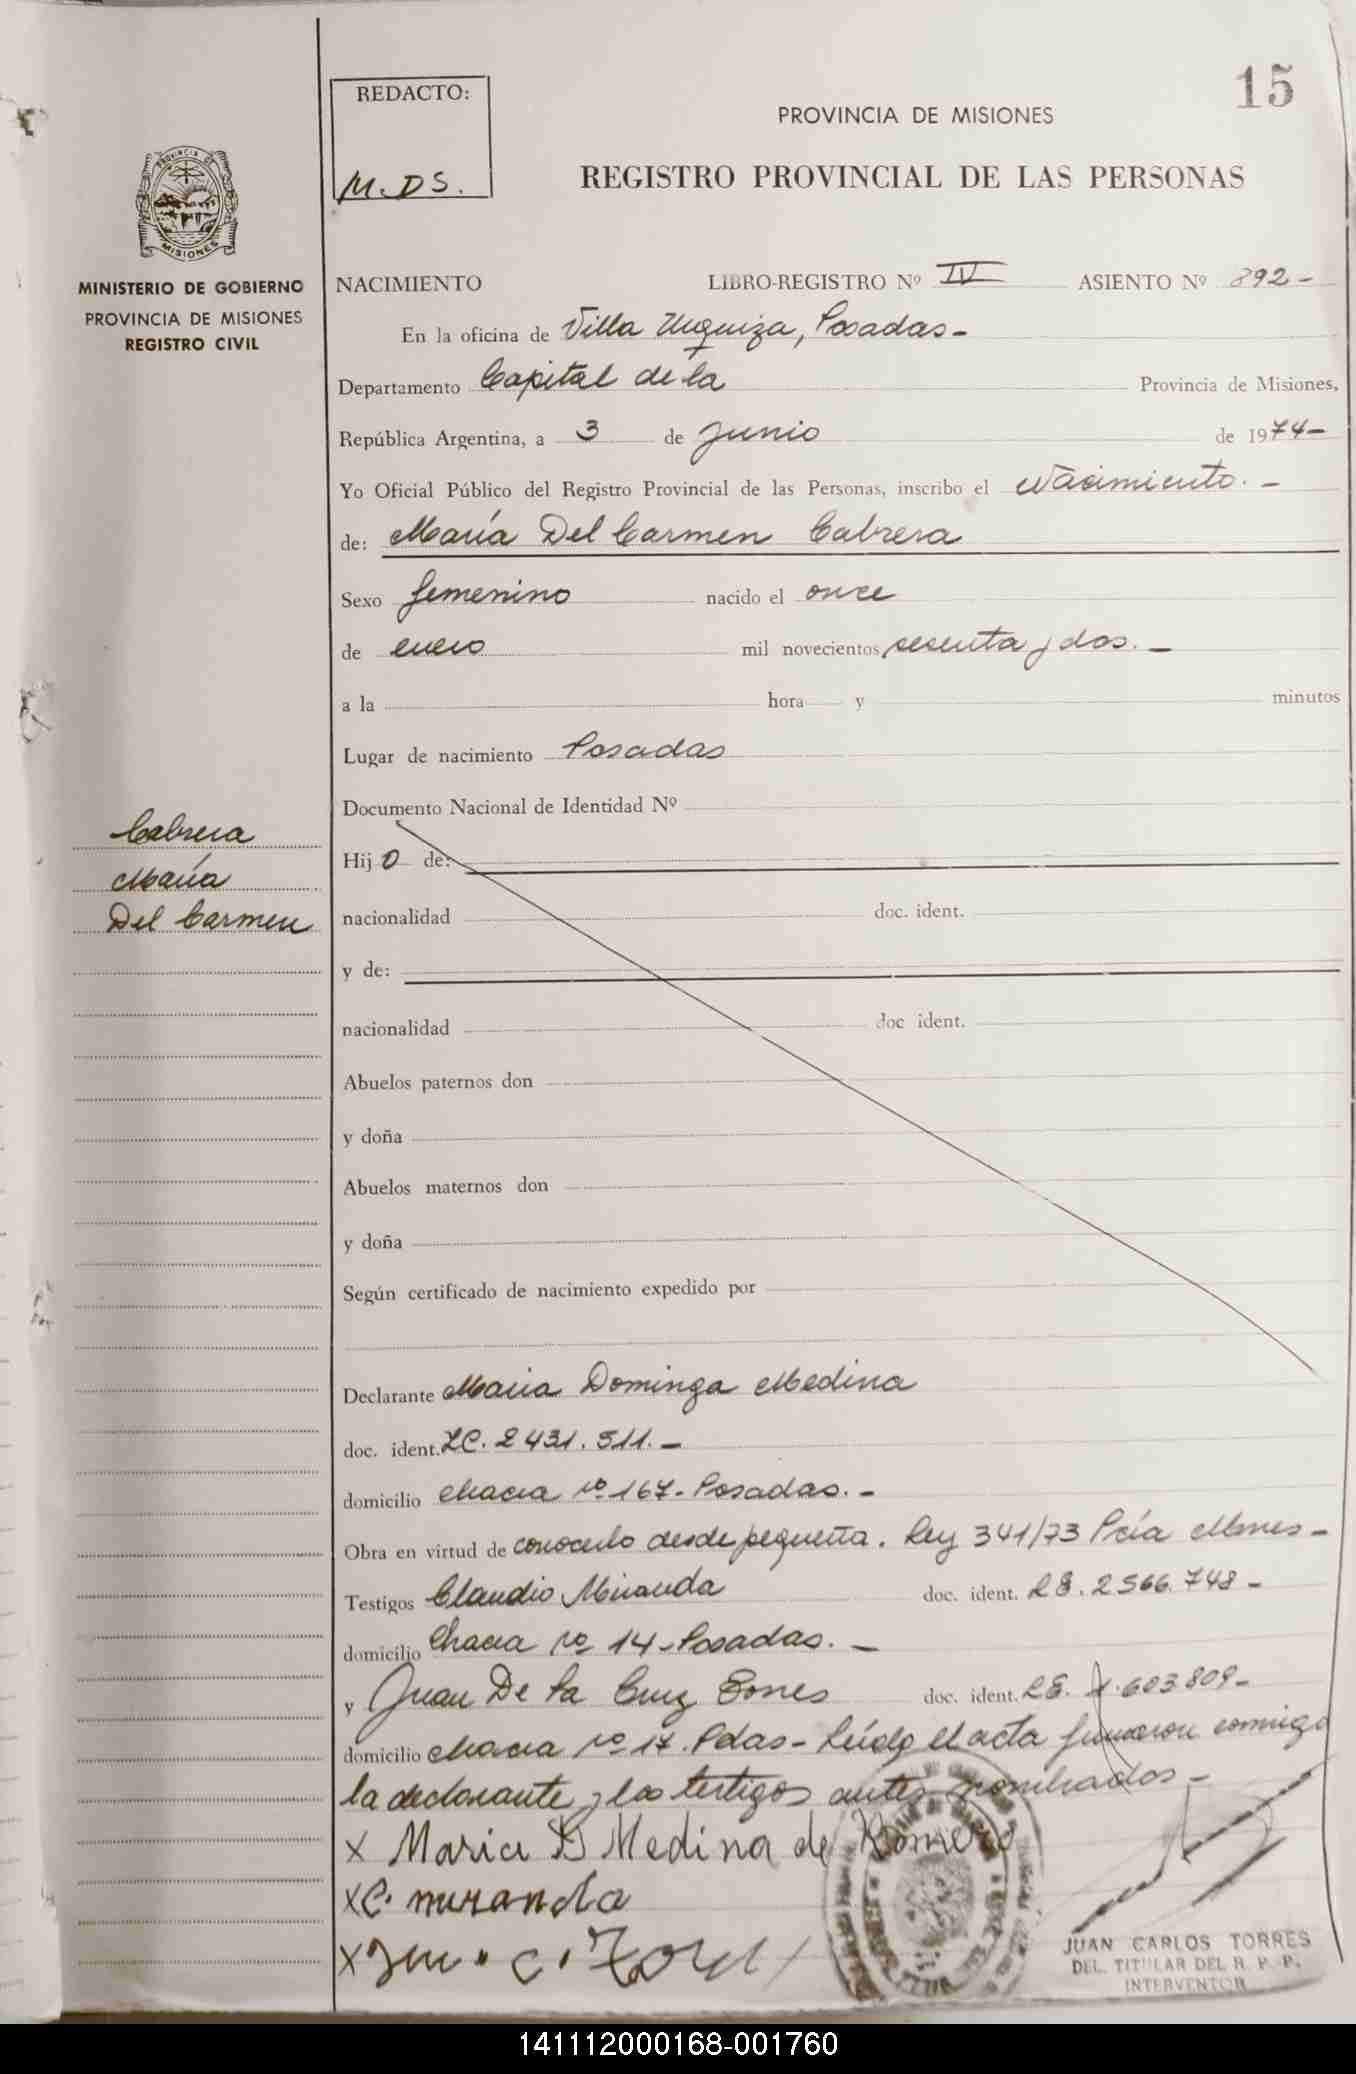 15
REDACTO:
M. D S.
PROVINCIA DE MISIONES
REGISTRO PROVINCIAL DE LAS PERSONAS
PROVINCIA DE
MISIONES
MINISTERIO DE GOBIERNO
PROVINCIA DE MISIONES
REGISTRO CIVIL
NACIMIENTO LIBRO-REGISTRO Nº IV ASIENTO Nº 892-
En la oficina de Villa Urquiza, Posadas-
Departamento Capital de la Provincia de Misiones,
República Argentina, a 3 de Junio de 1974-
Yo Oficial Público del Registro Provincial de las Personas, inscribo el Nacimiento.-
de: María Del Carmen Cabrera
Sexo femenino nacido el once
de enero mil novecientos sesenta y dos.-
a la hora y minutos
Lugar de nacimiento Posadas
Documento Nacional de Identidad Nº
Cabrera
María
Del Carmen
Hij o de:
nacionalidad doc. ident.
y de:
nacionalidad doc ident.
Abuelos paternos don
y doña
Abuelos maternos don
y doña
Según certificado de nacimiento expedido por
Declarante Maria Dominga Medina
doc. ident. LC. 2431.511.-
domicilio chacra nº 167- Posadas.-
Obra en virtud de conocerlo desde pequeña. Ley 341/73 Pcía Mnes-
Testigos Claudio Miranda doc. ident. LE. 2566.748-
domicilio Chacra nº 14-Posadas.-
y Juan De la Cruz Torres doc. ident. LE. 603809-
domicilio chacra nº 17. Pdas- Leído el acta firmaron conmigo
la declarante y los testigos antes nombrados-
x Maria D Medina de Romero
x C. miranda
x c.
JUAN CARLOS TORRES
DEL. TITULAR DEL R. P. P.
INTERVENTOR
141112000168-001760